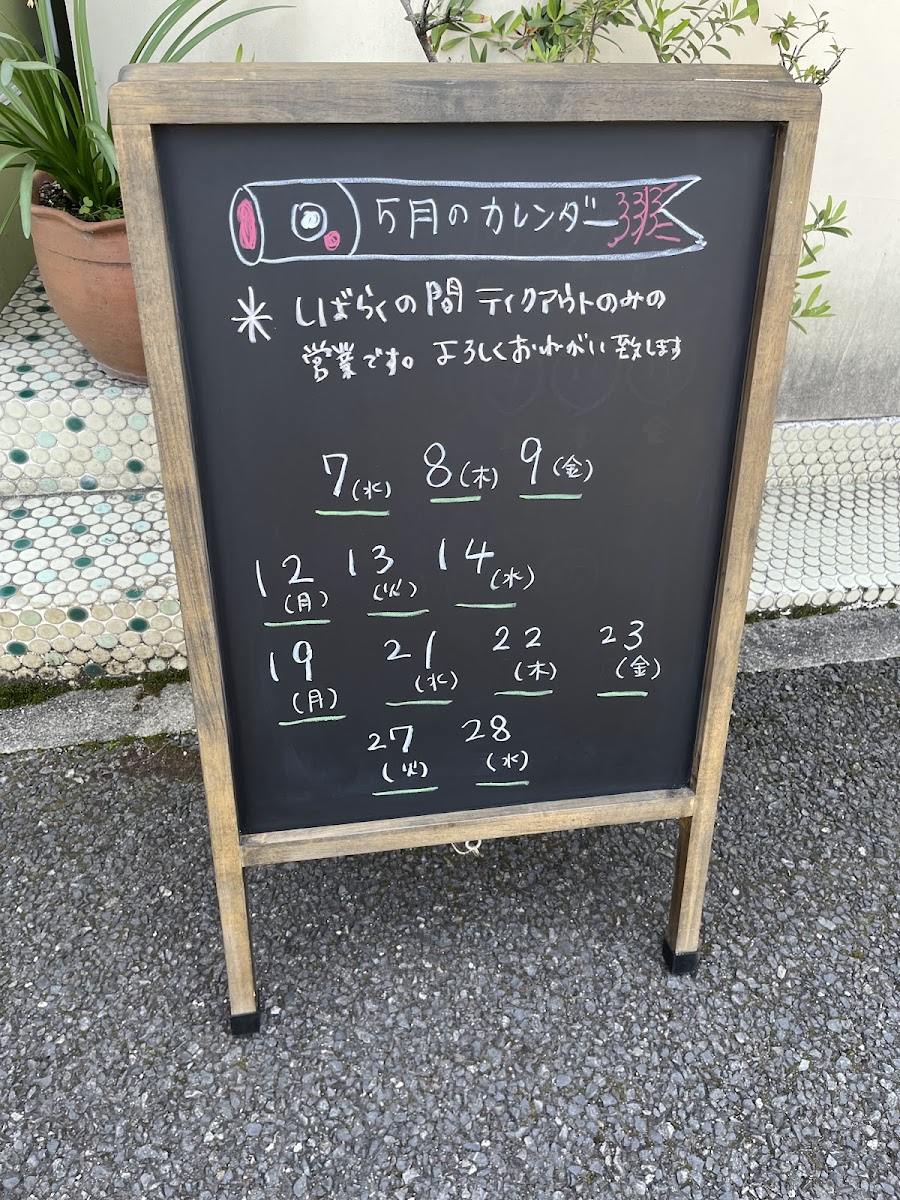 5月のカレンダー
＊ しばらくの間 テイクアウトのみの
営業です。よろしくおねがい致します
7(水) 8(木) 9(金)
12(月) 13(火) 14(水)
19(月) 21(水) 22(木) 23(金)
27(火) 28(水)